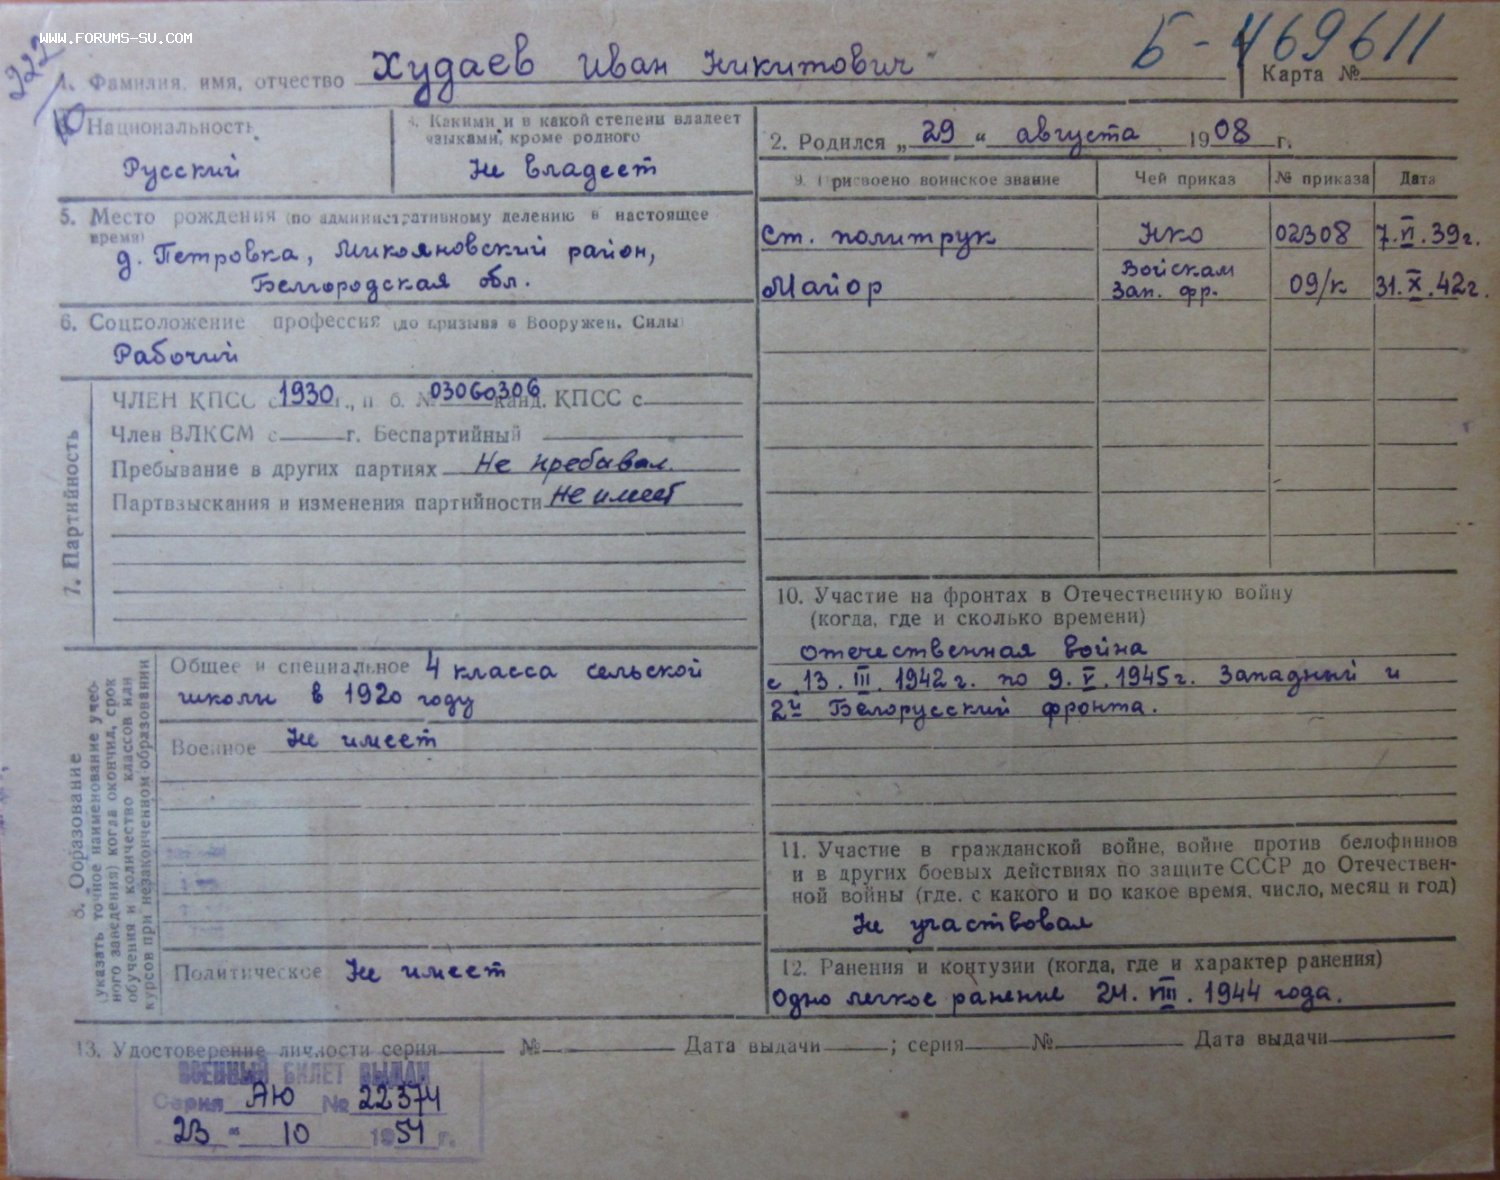 www.forums-su.com
922
Б-469611
1. Фамилия, имя, отчество Худаев Иван Никитович
Карта №
Национальность
Русский
4. Какими и в какой степени владеет языками, кроме родного
Не владеет
2. Родился „29“ августа 1908 г.
5. Место рождения (по административному делению в настоящее время)
д. Петровка, Микояновский район,
Белгородская обл.
9. Присвоено воинское звание Чей приказ № приказа Дата
Ст. политрук НКО 02308 7.VI.39г.
Майор Войскам Зап. фр. 09/к 31.X.42г.
6. Соцположение профессия (до призыва в Вооружен. Силы)
Рабочий
7. Партийность
ЧЛЕН КПСС с 1930 г., п. б. № 03060306 канд. КПСС с
Член ВЛКСМ с г. Беспартийный
Пребывание в других партиях Не пребывал.
Партвзыскания и изменения партийности Не имеет
8. Образование
(указать точное наименование учебного заведения) когда окончил, срок
обучения и количество классов или
курсов при незаконченном образовании
Общее и специальное 4 класса сельской
школы в 1920 году
Военное Не имеет
Политическое Не имеет
10. Участие на фронтах в Отечественную войну
(когда, где и сколько времени)
Отечественная война
с 13.III.1942г. по 9.V.1945г. Западный и
2й Белорусский фронта.
11. Участие в гражданской войне, войне против белофиннов
и в других боевых действиях по защите СССР до Отечествен-
ной войны (где, с какого и по какое время, число, месяц и год)
Не участвовал
12. Ранения и контузии (когда, где и характер ранения)
Одно легкое ранение 24.VIII.1944 года.
13. Удостоверение личности серия № Дата выдачи ; серия № Дата выдачи
ВОЕННЫЙ БИЛЕТ ВЫДАН
Серия АЮ № 22374
23 “ 10 1951 г.